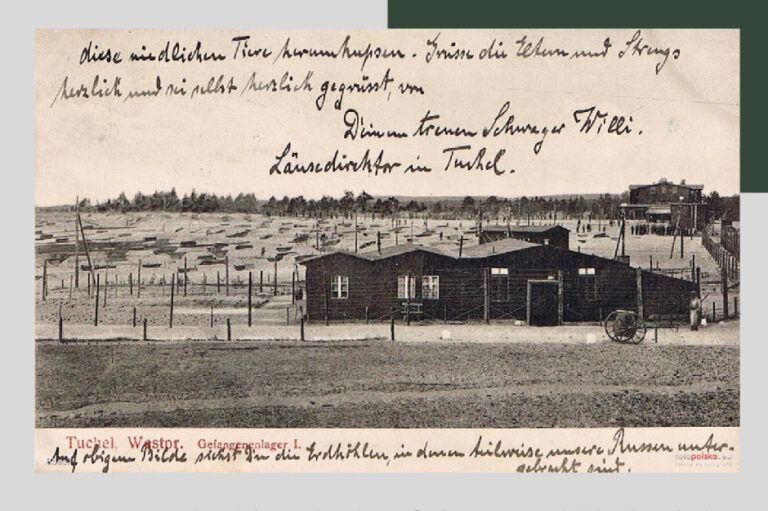 diese niedlichen Tiere herumhupsen. Grüsse die Eltern und Strengs
herzlich und sei selbst herzlich gegrüsst, von
Deinem treuen Schwager Willi.
Läusedirektor in Tuchel.
Tuchel, Westpr. Gefangenenlager I.
Auf obigem Bilde siehst Du die Erdhöhlen, in denen teilweise unsere Russen unter-
gebracht sind.
fotopolska.eu